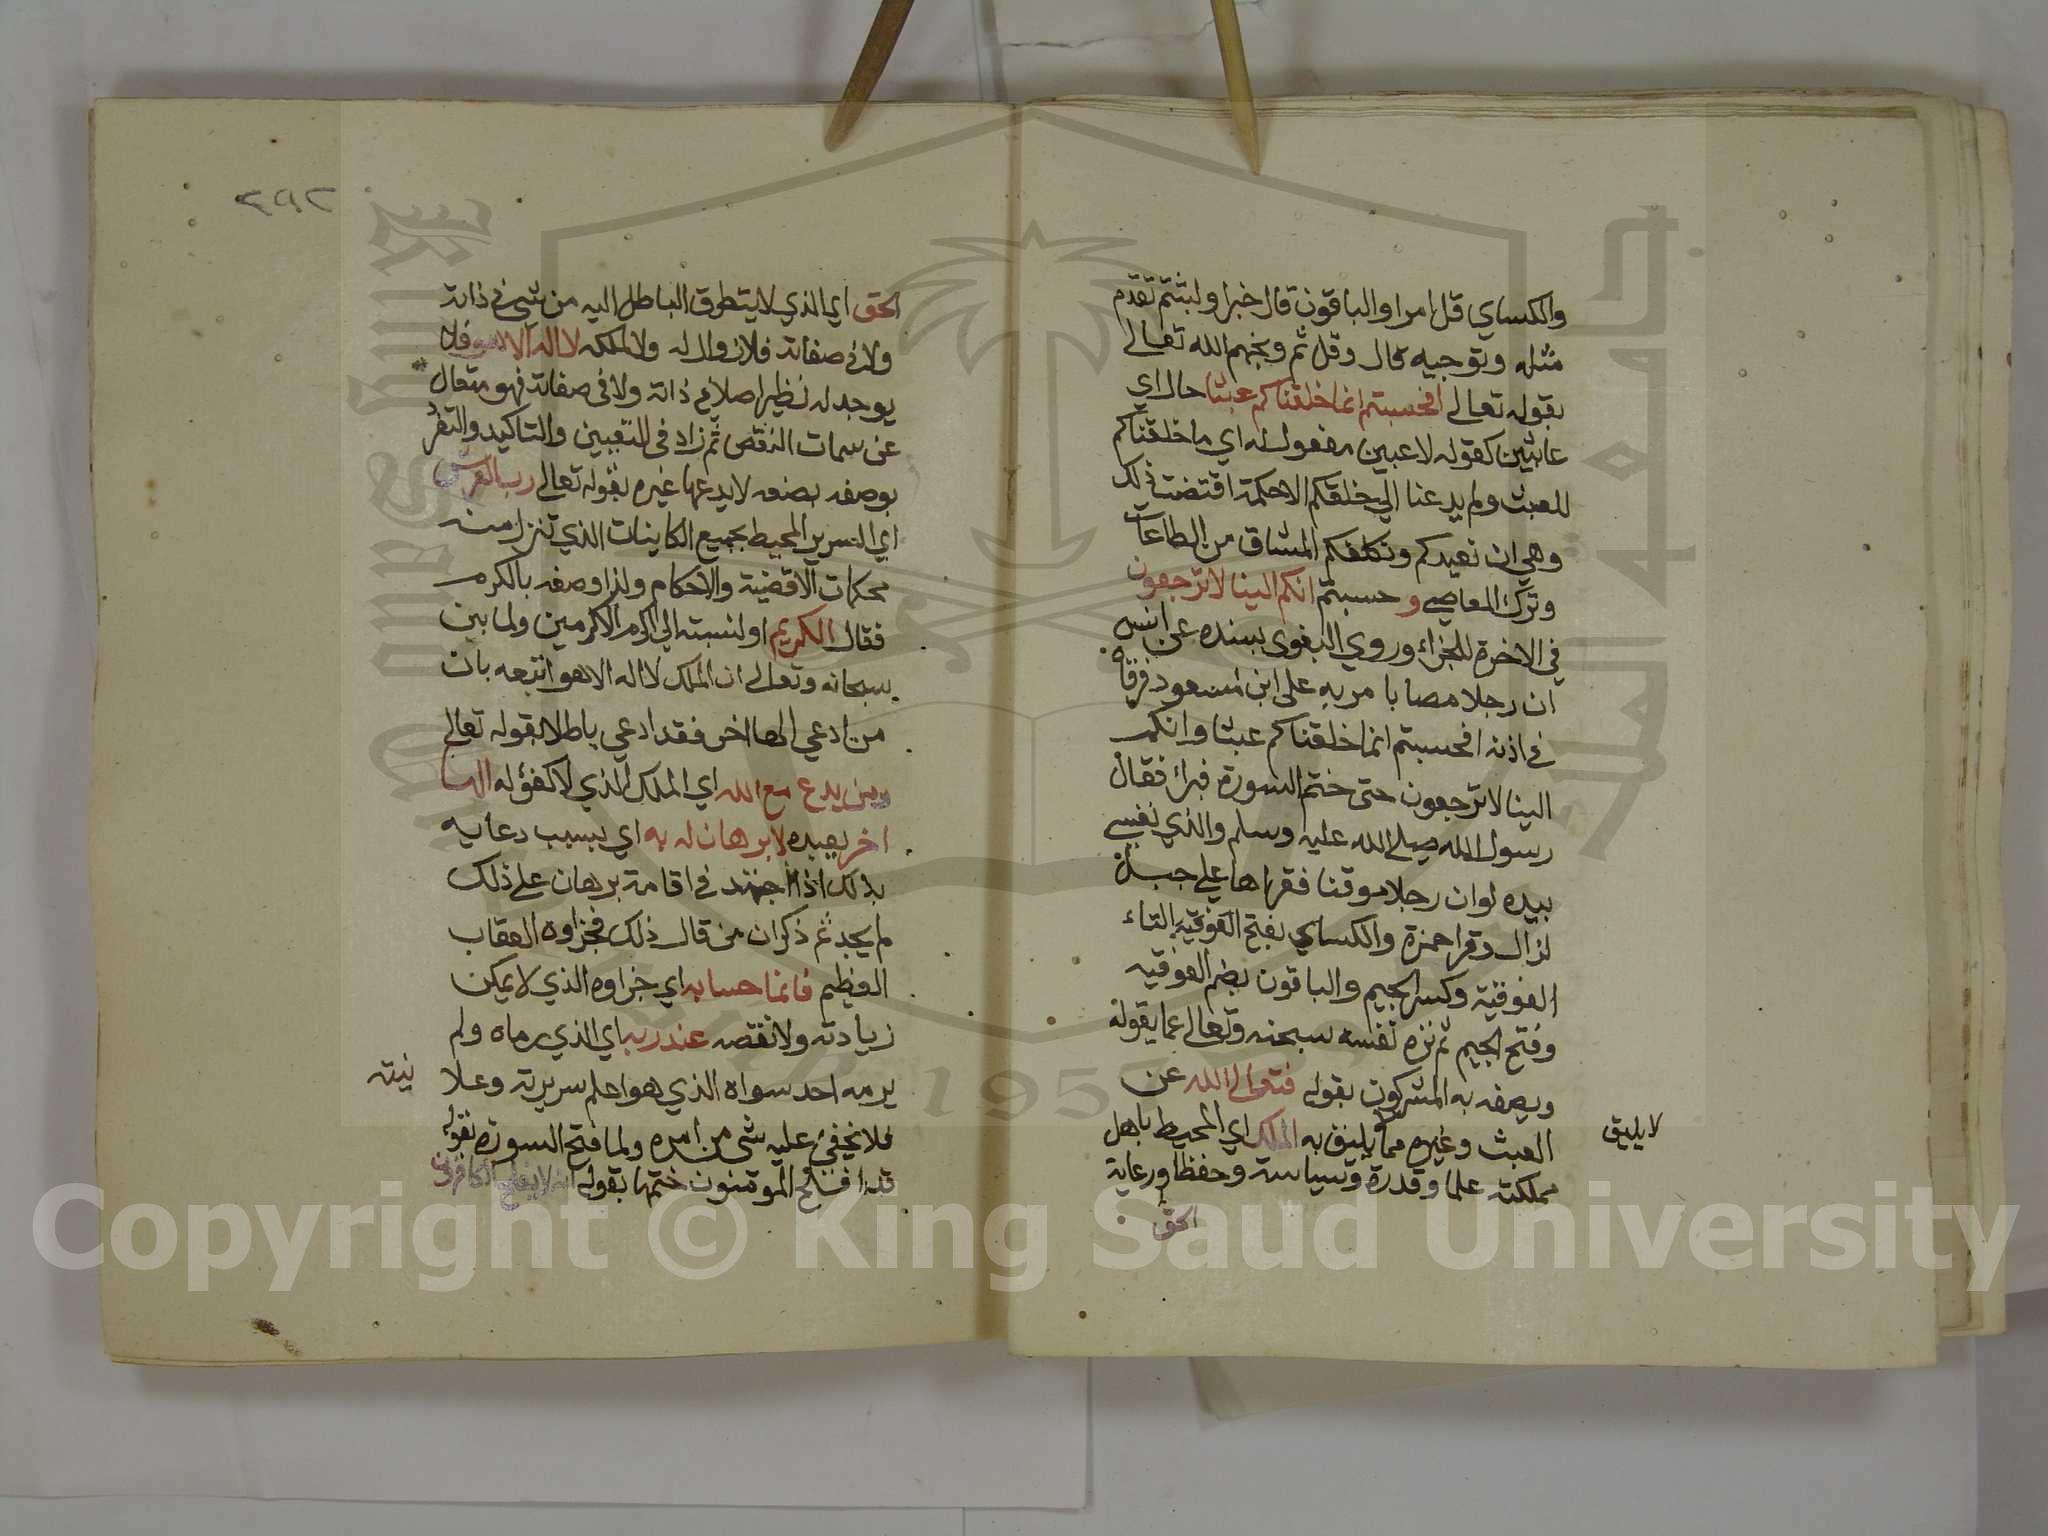 والكساي قل امرا والباقون قال خبرا ولبثتم تقدم
مثله وتوجيه قال وقل ثم وبخهم الله تعالى
بقوله تعالى افحسبتم انما خلقناكم عبثا حال اي
عابثين كقوله لاعبين مفعول له اي ما خلقناكم
للعبث ولم يدعنا الي خلقكم الا حكمة اقتضت ذلك
وهي ان نعبدكم ونكلفكم المشاق من الطاعات
وترك المعاصي وحسبتم انكم الينا لا ترجعون
في الاخرة للجزاء وروي البغوى بسنده عن انس
ان رجلا مصابا مر به على ابن مسعود فرقاه
في اذنه افحسبتم انما خلقناكم عبثا وانكم
الينا لا ترجعون حتى ختم السورة فبرا فقال
رسول الله صلى الله عليه وسلم والذي نفسي
بيده لو ان رجلا موقنا فقراها علي جبل
لزال وقرا حمزة والكساي بفتح الفوقية التاء
الفوقية وكسر الجيم والباقون بضم الفوقيه
وفتح الجيم ثم نزه نفسه سبحنه وتعالى عما يقوله
ويصفه به المشركون بقوله فتعالى الله عن
العبث وغيره مما يليق به الملك اي المحيط باهل
لا يليق
مملكته علما وقدرة وسياسة وحفظا ورعاية
الحق
الحق اي الذي لا يتطرق الباطل اليه من شي في ذاته
ولا في صفاته فلا زوال له ولا لملكه لا اله الا هو فلا
يوجد له نظير اصلا في ذاته ولا في صفاته فهو متعال
عن سمات النقص ثم زاد في التعيين والتاكيد والتفرد
بوصفه بصفه لا يدعيها غيره بقوله تعالى رب العرش
اي السرير المحيط بجميع الكاينات الذي تنزل منه
محكمات الاقضية والاحكام ولذا وصفه بالكرم
فقال الكريم او لنسبته الي اكرم الاكرمين ولما بين
سبحانه وتعالى ان الملك لا اله الا هو اتبعه بان
من ادعي الها اخر فقد ادعي باطلا بقوله تعالى
ومن يدع مع الله اي الملك الذي لا كفؤ له الها
اخر يعبده لا برهان له به اي بسبب دعايه
بذلك اذا اجتهد في اقامة برهان على ذلك
لم يجد ثم ذكر ان من قال ذلك فجزاوه العقاب
العظيم فانما حسابه اي جزاوه الذي لا يمكن
زيادته ولا نقصه عند ربه اي الذي رباه ولم
يربه احد سواه الذي هو اعلم سريرته وعلا نيته
فلا يخفى عليه شي من امره ولما فتح السورة بقوله
قد افلح المومنون ختمها بقوله انه لا يفلح الكافرون